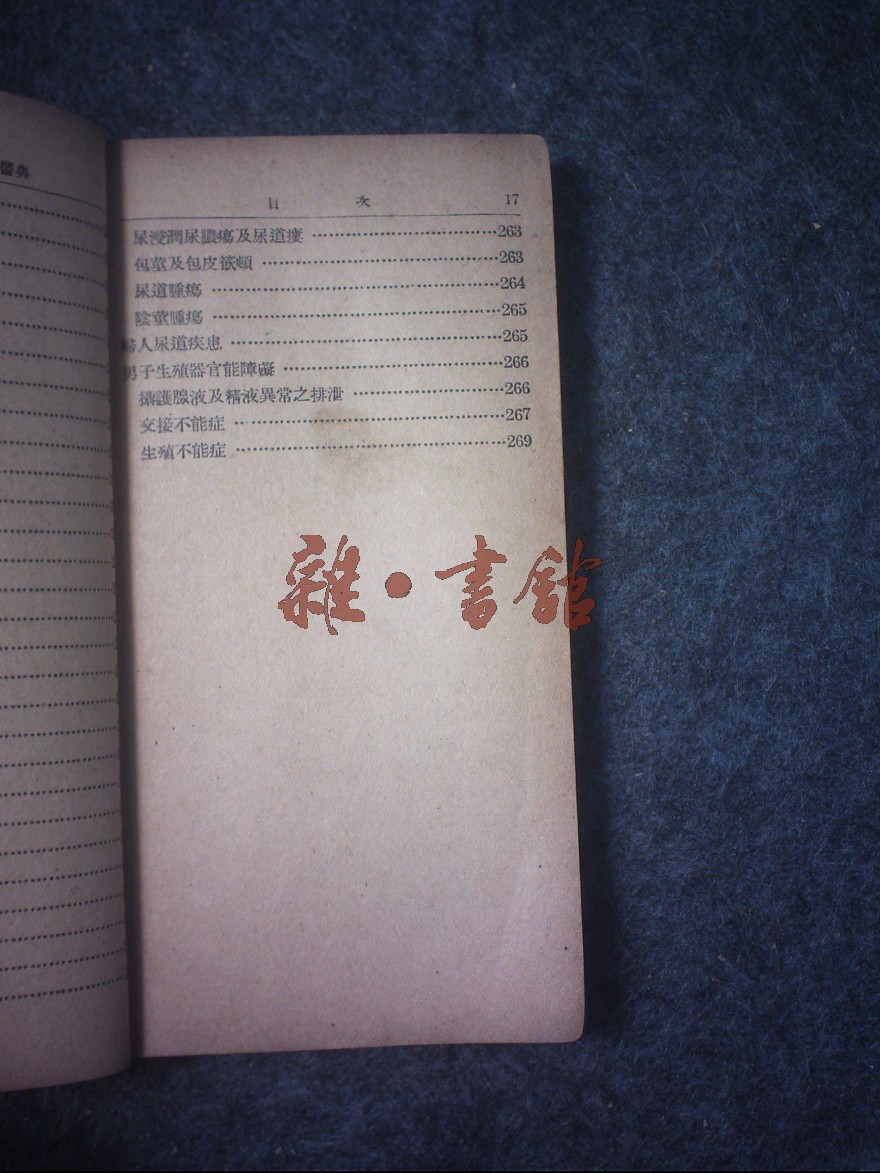 醫典
目 次 17
尿浸潤尿膿瘍及尿道瘻 263
包莖及包皮嵌頓 263
尿道腫瘍 264
陰莖腫瘍 265
婦人尿道疾患 265
男子生殖器官能障礙 266
攝護腺液及精液異常之排泄 266
交接不能症 267
生殖不能症 269
雜·書館